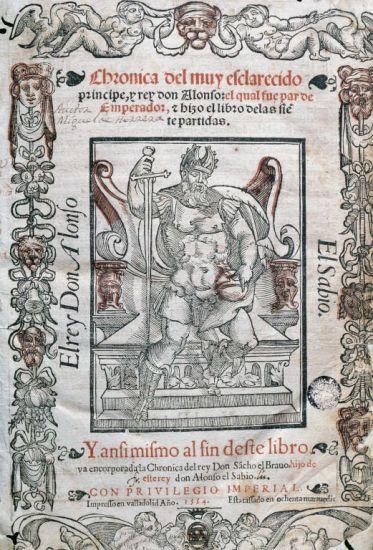 Chronica del muy esclarecido
principe, y rey don Alonso: el qual fue par de
Emperador, & hizo el libro delas sie
te partidas.
Autor
Miguel de Herrera
El rey Don Alonso
El Sabio.
Y ansi mismo al fin deste libro
va encorporada la Chronica del rey Don Sãcho el Brauo. hijo de
este rey don Alonso el Sabio.
CON PRIVILEGIO IMPERIAL.
Impresso en valladolid Año. 1554.
Esta tassado en ochenta marauedis